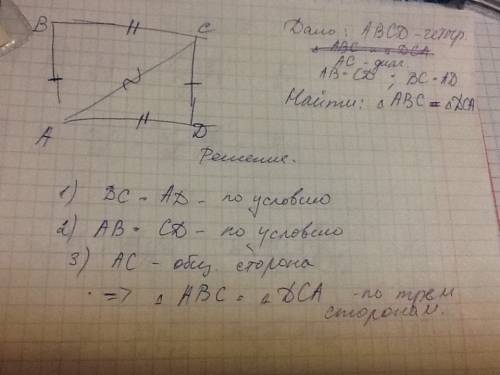 B
C
A
D
Дано: ABCD - четыр.
Δ ABC = Δ DCA
AC - диаг.
AB = CD ; BC = AD
Найти: Δ ABC = Δ DCA
Решение.
1) BC = AD - по условию
2) AB = CD - по условию
3) AC - общ. сторона
=> Δ ABC = Δ DCA - по трем
сторонам.